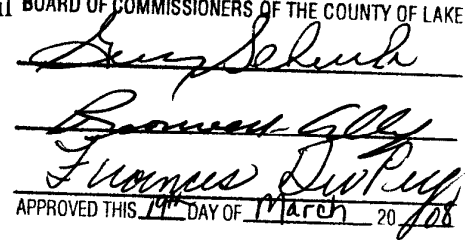 BOARD OF COMMISSIONERS OF THE COUNTY OF LAKE
Gerry Scheub
Frances DuPey
APPROVED THIS 19th DAY OF March 20 08